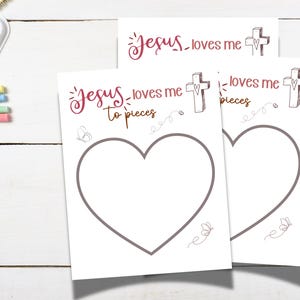 Jesus loves me
Jesus loves me
to pieces
loves me
pieces